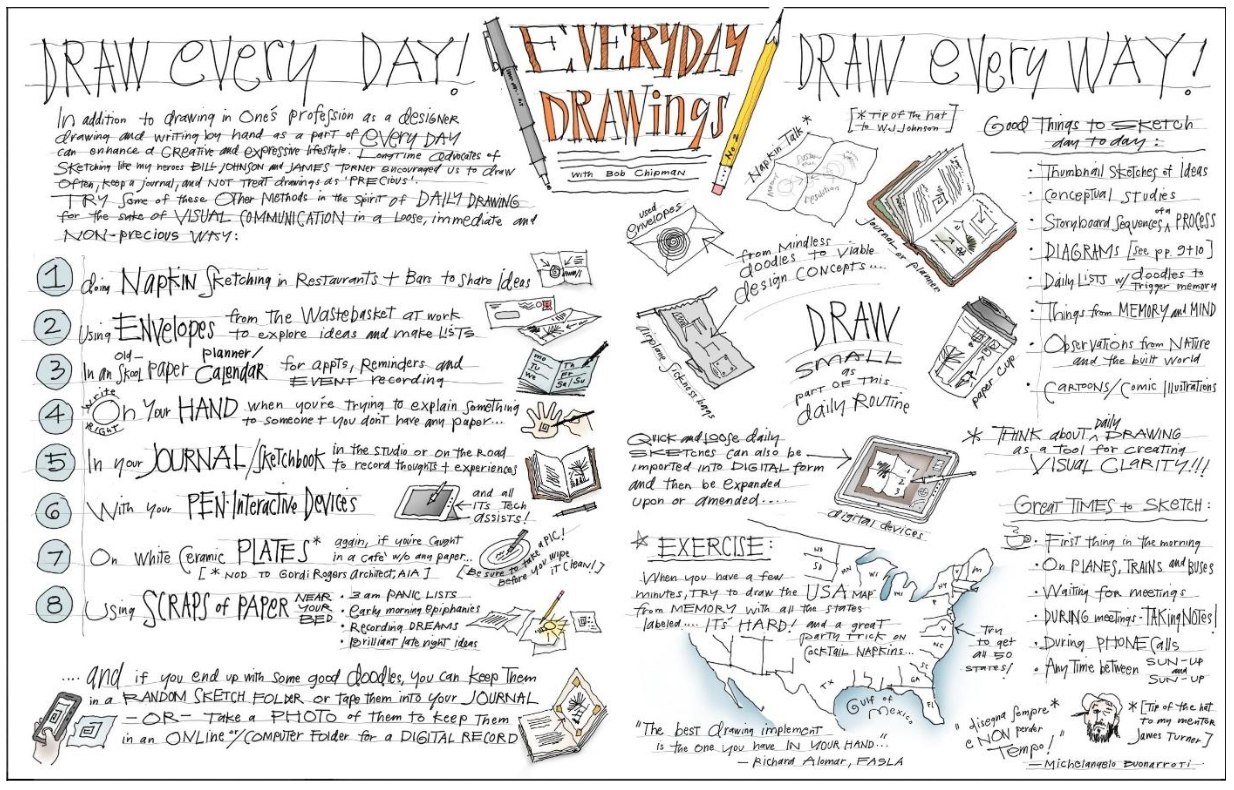 DRAW every DAY!
EVERYDAY
DRAWings
with Bob Chipman
DRAW every WAY!
In addition to drawing in One's profession as a DESIGNER
drawing and writing by hand as a part of EVERY DAY
can enhance a CREATIVE and expressive lifestyle. Longtime advocates of
SKETCHING like my heroes BILL JOHNSON and JAMES TURNER encouraged us to draw
Often, keep a journal, and NOT TREAT drawings as 'PRECIOUS'.
TRY Some of these Other METHODS in the Spirit of DAILY DRAWING
for the sake of VISUAL COMMUNICATION in a Loose, immediate and
NON-precious WAY:
1 doing NAPKIN Sketching in RESTAURANTS + BARS to SHARE IDEAS
2 Using ENVELOPES from the WASTEBASKET AT WORK
to explore ideas and make LISTS
3 In an Old-Skool PAPER planner/CALENDAR for appts, Reminders and
EVENT recording
MO
TU
We
Th
Fr
Sa/Su
4 write RIGHT On Your HAND when you're trying to explain something
to someone + you don't have any paper...
5 In your JOURNAL/Sketchbook in the STUDIO or on the ROAD
to record thoughts + experiences
6 With your PEN-Interactive Devices
and all
ITS Tech
ASSISTS!
7 On White Ceramic PLATES* again, if you're Caught
in a cafe' w/o any paper...
[* NOD TO Gordi Rogers Architect, AIA]
[Be sure to take a PIC!
Before you wipe
iT Clean!]
8 Using SCRAPS of PAPER NEAR
YOUR
BED
• 3 am PANIC LISTS
• Early morning epiphanies
• Recording DREAMS
• Brilliant late night ideas
.... and if you end up with Some good doodles, You can KEEP Them
in a RANDOM SKETCH FOLDER or TAPE Them into Your JOURNAL
- OR - Take a PHOTO of Them to Keep Them
in an ONLine or/COMPUTER Folder for a DIGITAL RECORD
No 2
Napkin Talk *
[* Tip of the hat
to W.J. Johnson]
used
envelopes
journal or planner
from Mindless
doodles to Viable
design CONCEPTS....
airplane sickness bags
DRAW
SMALL
as
part of this
daily Routine
paper cup
Quick and Loose daily
SKETCHES can also be
imported into DIGITAL form
and then be expanded
upon or amended....
digital devices
* EXERCISE:
When you have a few
minutes, TRY to draw the USA MAP
from MEMORY with all the states
labeled.... IT'S HARD! and a great
party trick on
COCKTAIL NAPKINS...
ND
SD
MN
WI
NY
P
V
SC
GA
FL
TX
Gulf of
Mexico
Try
to get
all 50
states!
"The best drawing implement
is the one you have IN YOUR HAND..."
- Richard Alomar, FASLA
Good Things to SKETCH
day to day:
• Thumbnail Sketches of Ideas
• Conceptual Studies
• Storyboard Sequences of a PROCESS
• DIAGRAMS [See pp. 9+10]
• Daily LISTS w/ doodles to
Trigger memory
• Things from MEMORY and MIND
• Observations from NATURE
and the built World
• CARTOONS/Comic Illustrations
* THINK about Daily DRAWING
as a Tool for Creating
VISUAL CLARITY!!!
Great TIMES to SKETCH:
• First thing in the morning
• On PLANES, TRAINS and BUSES
• Waiting for meetings
• DURING meetings - TAKing NOTES!
• During PHONE Calls
• Any Time between SUN-UP
and
SUN-UP
"disegna Sempre*
e NON perder
Tempo!"
* [Tip of the hat
to my mentor
James Turner]
- Michelangelo Buonarroti